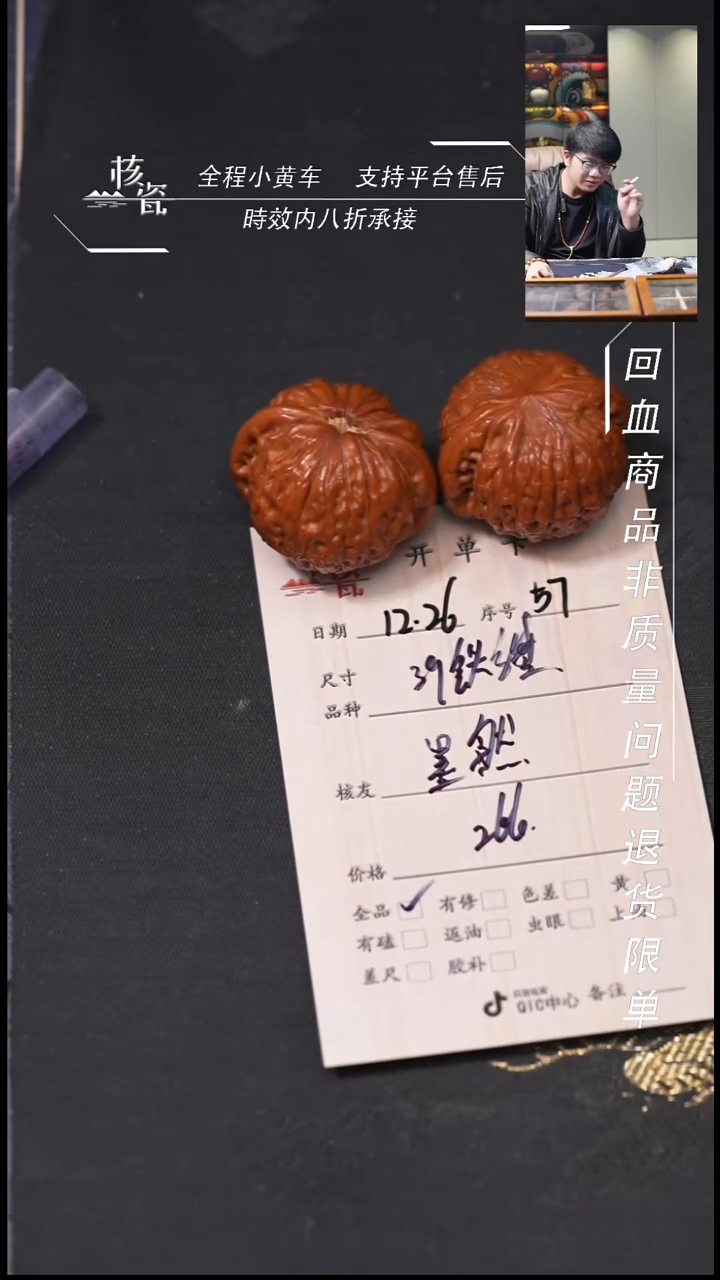 核瓷
全程小黄车 支持平台售后
時效内八折承接
回血商品非质量问题退货限单
开单卡
瓷
日期 12.26 序号 57
尺寸 39铁雄
品种
核友 昱然
价格 266.
全品 ✓ 有修 色差 黄
有磕 返油 虫眼 上
差尺 胶补
QIC中心 备注